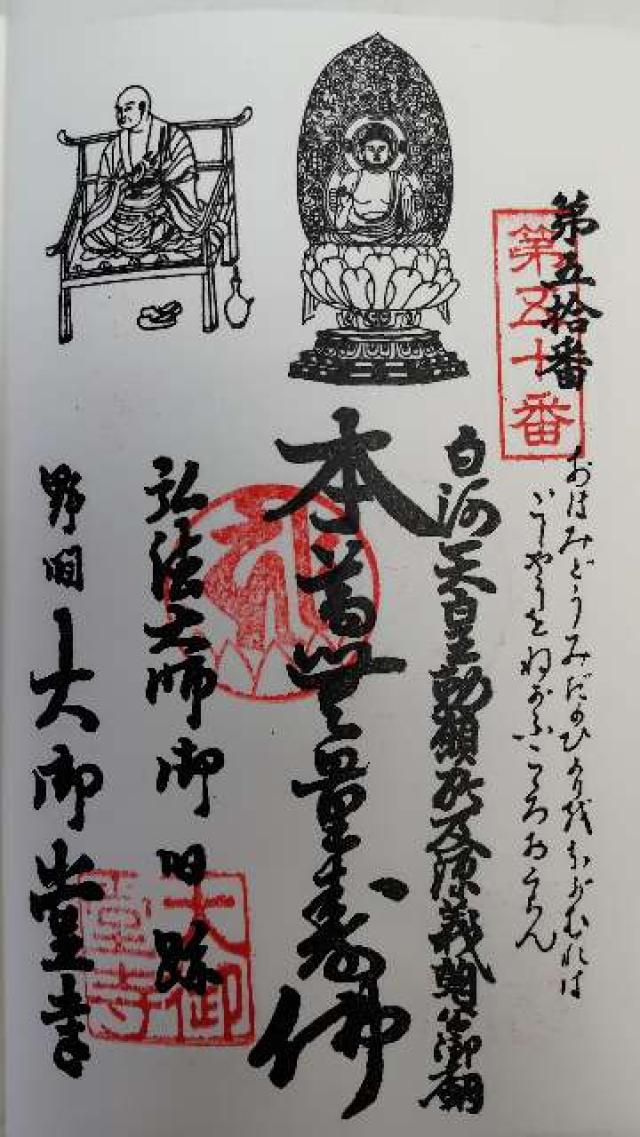 第五拾番
第五十番
おはみどうみだのひかりを
いでやうをねがふこころおこらん
白河天皇勅願所及源義朝公御廟
本尊無量寿佛
弘法大師御旧跡
野間大御堂寺
大御堂寺